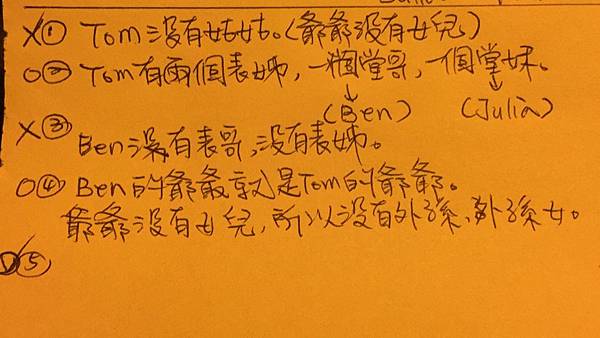 X① Tom 沒有姑姑。(爺爺沒有女兒)
O② Tom有兩個表姊,一個堂哥,一個堂妹。
(Ben) (Julia)
X③ Ben沒有表哥,沒有表姊。
O④ Ben的爺爺就是Tom的爺爺。
爺爺沒有女兒,所以沒有外孫、外孫女。
⑤